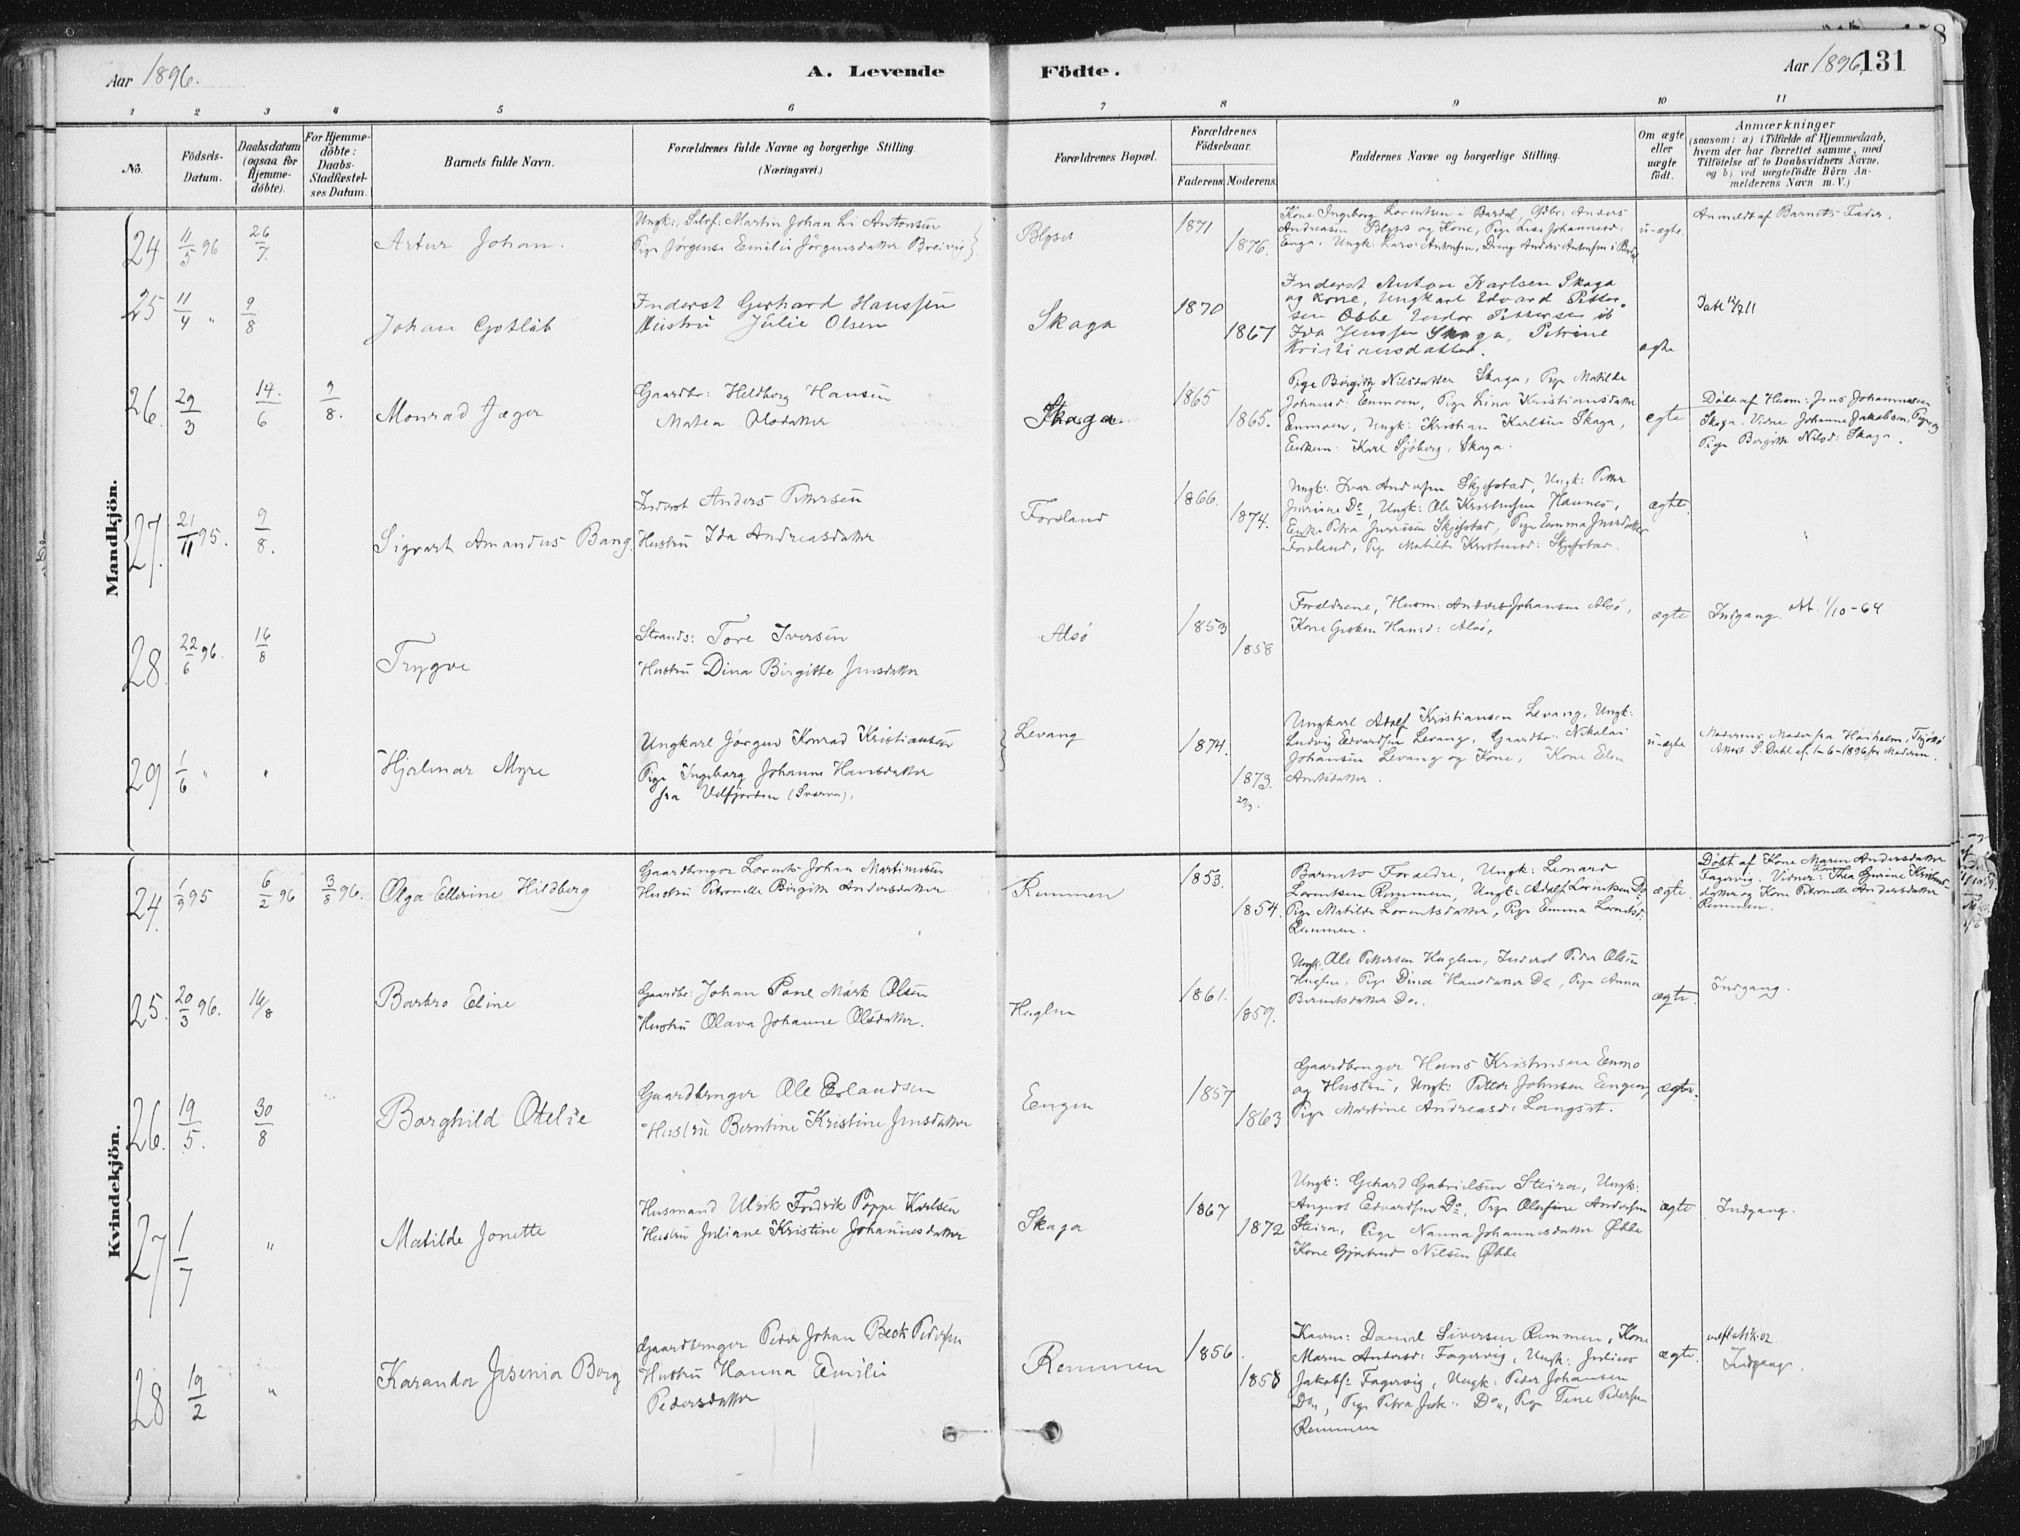 Aar 1896. A. Levende Fødte. Aar 1896. 131
1 2 3 4 5 6 7 8 9 10 11
No.
Födsels-Datum.
Daabsdatum (ogsaa for Hjemme-döbte).
For Hjemme-döbte: Daabs-Stadfæstel-ses Datum.
Barnets fulde Navn.
Forældrenes fulde Navne og borgerlige Stilling (Næringsvei.)
Forældrenes Bopæl.
Forældrenes Födselsaar.
Faderens. Moderens.
Faddernes Navne og borgerlige Stilling.
Om ægte eller uægte födt.
Anmærkninger
(saasom: a) i Tilfælde af Hjemmedaab,
hvem der har forrettet samme, med
Tilföielse af to Daabsvidners Navne,
og b) ved uægtefödte Börn An-
melderens Navn m. V.)
Mandkjön.
24 11/5 96 26/7. Artur Johan.
Pige Jörgine Emilie Jörgensdatter Breivig
Blyset 1871 1876.
u-ægte. Anmeldt af Barnets Fader.
25 11/4 " 9/8 Johan Gotlib
Inderst Gerhard Hanssen
Hustru Julie Olsen
Skaga 1870 1867
Inderst Anton Karlsen Skaga
og Kone, Ungkarl Edvard Petter-
sen Øbbe
Ida Jenssen Skaga, Petrine
Kristiansdatter.
ægte
26. 29/3 14./6 9/8. Monrad Jæger
Gaardbr: Heldberg Hansen
Matea Olsdatter
Skaga 1865 1865.
Pige Birgitte Nilsdatter Skaga, Pige Matilde
Johansd: Enmoen, Pige Lina Kristiansdatter
Enmoen, Ungk: Kristian Karlsen Skaga,
Enkem: Karl Sjöberg, Skaga.
ægte
Döbt af Husm: Jens Johannessen
Skaga. Vidne Johanne Jakobsen, Pige og
Pige Bergitte Nilsd: Skaga.
27. 21/11 95. 9/8. Sigvart Amandus Bang.
Inderst Anders Pettersen
Hustru Ida Andreasdatter
Forsland 1866. 1874.
Ungk: Ivar Andersen Skjefstad, Ungk: Petter
Jensine Do, Ungk: Ole Kristensen Hannes,
Forsland, Pige Matilde Kristensd: Skjefstad.
ægte
28. 22/6 96. 16/8 Trygve
Strands: Tore Iversen
Hustru Dina Birgitte Jensdatter
Alsö 1853 1858
Forældrene, Husm: Anders Johansen Alsö,
Kone Gjoken Hansd: Alsö,
ægte Indgang. att. 1/10-64
29 1/6 " " Hjalmar Myre
Ungkarl Jörgen Konrad Kristiansen
Pige Ingeborg Johanna Hansdatter
fra Velfjorden
Levang 1874. 1873.
Ungkarl Adolf Kristiansen Levang, Ungk:
Ludvig Edvardsen Levang, Gaardbr: Nikolai
Johansen Levang og Kone, Kone Elen
u-ægte
Kvindekjön.
24. 1/9 95 6/2 96 3/8 96. Olga Ellerine Hildborg
Gaardbruger Lorents Johan Martinusen
Hustru Petronelle Birgitte Andersdatter
Remmen 1853. 1854.
Barnets Forældre, Ungk: Leonard
Lorentsen Remmen, Ungk: Adolf Lorentsen Do
Pige Matilde Lorentsdatter, Pige Emma Lorentsd:
Remmen.
ægte.
Döbt af Kone Maren Andersdatter
Fagervig.
datter og Kone Petronelle Andersdatter
Remmen.
25. 20/3 96. 16/8 Barbro Eline
Gaardbr: Johan Pone Mörk Olsen
Hustru Olava Johanne Olsdatter.
Haglen 1861. 1859.
Ungk: Ole Pettersen Haglen, Inderst Peder Olsen
Haglen, Pige Dina Hansdatter Do, Pige Anna
Berntsdatter Do.
ægte. Indgang.
26. 19/5. 30/8 Borghild Otelie
Gaardbruger Ole Erlandsen
Hustru Berntine Kristine Jensdatter
Eengen 1857 1863
Gaardbruger Hans Kristensen Eenmo
og Hustru, Ungk: Petter Johnsen Eengen,
Pige Martine Andreasd: Langset.
ægte.
27 1/7 " Matilde Jonette
Husmand Ulrik Fredrik Poppe Karlsen
Hustru Juliane Kristine Johannesdatter
Skaga 1867 1872
Ungk: Gerhard Gabrielsen Steira, Ungk:
August Edvardsen Do, Pige Olufine Andersen
Steira, Pige Nanna Johannesdatter Øbbe
Kone Gjertrud Nilsen Øbbe
ægte Indgang.
28 19/2 " Karanda Jesenia Borg
Gaardbruger Peder Johan Beck Pedersen
Hustru Hanna Emilie
Pedersdatter
Remmen 1856. 1858
Kaarm: Daniel Sivertsen Remmen, Kone
Maren Andersd: Fagervig, Ungk: Julius
Jakobs: Fagervig, Ungk: Peder Johansen
Do, Pige Petra Jak: Do, Pige Tine Pedersen
Remmen
ægte. Indgang.